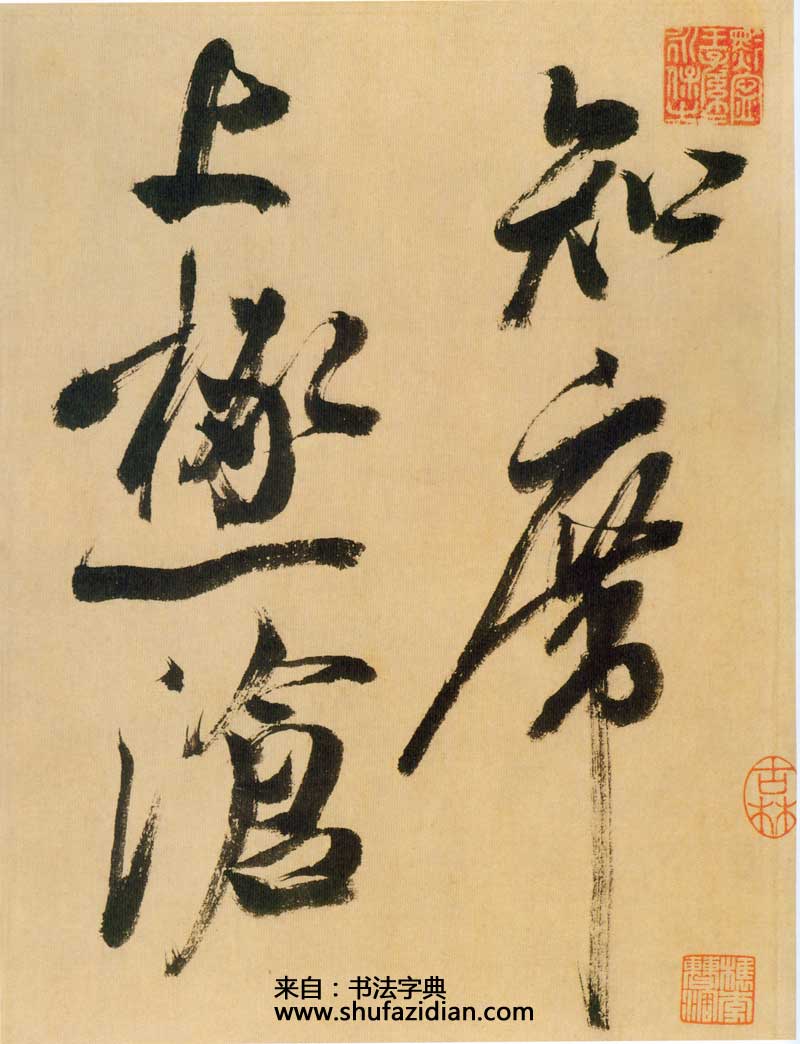 知席
上極滄
来自：书法字典
www.shufazidian.com